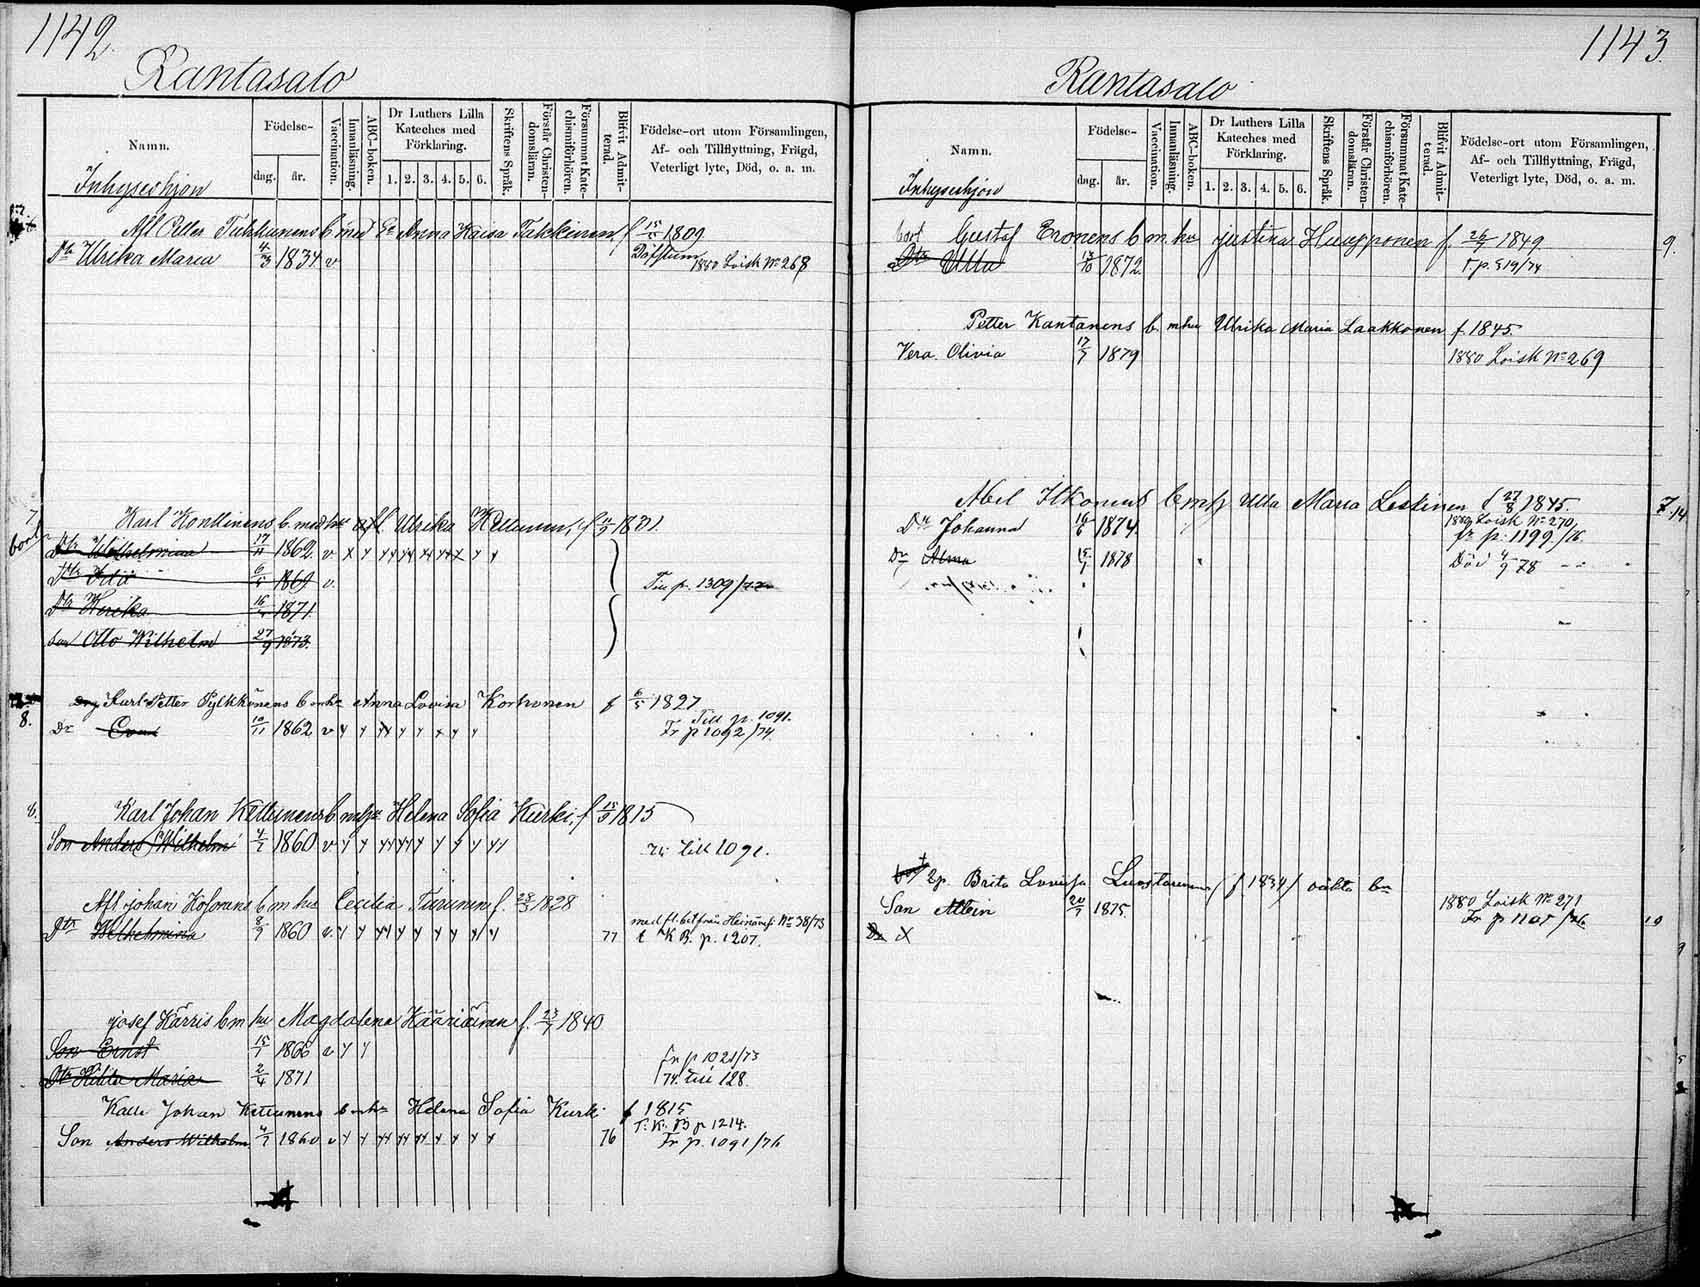 1142.
Rantasalo
Namn.
Inhyseshjon
Födelse-
dag. år.
Vaccination.
Innanläsning.
ABC-boken.
Dr Luthers Lilla Kateches med Förklaring.
1. 2. 3. 4. 5. 6.
Skriftens Språk.
Förstår Christendomslären.
Försummat Katechismiförhören.
Blifvit Admitterad.
Födelse-ort utom Församlingen, Af- och Tillflyttning, Frägd, Veterligt lyte, Död, o. a. m.
Afl Petter Tukkunens b med Anna Kaisa Takkinen f 1809
Dtr Ulrika Maria 4/3 1834 v 1880 Loisk No 268
7
bort
Karl Konttinens b med hu afl Ulrika Kettunen, f 1831.
Dtr Wilhelmina 17/11 1862. v x y
Dtr Ida 6/5 1869 v. Till p. 1309/77
Dtr 16 1871.
Son Otto Wilhelm 27/9 1873.
8.
Karl Petter Pylkkönens b m hu Anna Lovisa Korhonen f 6/5 1827
Till p. 1091.
Dr Eva 10/11 1862 v y y Fr p 1092/74
8.
Karl Johan Kettunens b m hu Helena Sofia Kurki, f 15 1815
Son Anders Wilhelm 4/7 1860 v y y 74 till 1091.
Afl Johan Kosonens b m hu Cecilia Turunen f. 28/3 1828
Dtr Wilhelmina 8/9 1860 v. y y 77 med fl. bet från Heinävesi No 38/73
t K B. p. 1207.
Josef Kärris b m hu Magdalena Kääriäinen f. 23/7 1840
Son Ernst 15/1 1866 v y y Fr p 1021/73
Dtr Hilda Maria 2/4 1871 74. till 128.
Kalle Johan Kettunens b m hu Helena Sofia Kurki f 1815
T. K. B p 1214.
Son Anders Wilhelm 4/7 1860 v y y 76 Fr p. 1091/76
1143.
Rantasalo
Namn.
Inhyseshjon
Födelse-
dag. år.
Vaccination.
Innanläsning.
ABC-boken.
Dr Luthers Lilla Kateches med Förklaring.
1. 2. 3. 4. 5. 6.
Skriftens Språk.
Förstår Christendomslären.
Försummat Katechismiförhören.
Blifvit Admitterad.
Födelse-ort utom Församlingen, Af- och Tillflyttning, Frägd, Veterligt lyte, Död, o. a. m.
bort Gustaf Eronens b m. hu Justina Huupponen f. 26/7 1849 9.
Dtr Ulla 13/10 1872. T. p. 519/74
Petter Kantanens b m hu Ulrika Maria Laakkonen f. 1845.
Vera Olivia 17/7 1879 1880 Loisk No 269
Abel Itkonens b m h Ulla Maria Leskinen f 27/8 1845. 7. 14
Dr Johanna 16/6 1874. 1880 Loisk No 270,
fr p. 1199/76
Dr Alma 15/1 1878 Död 4/9 78
2p. Brita Lovisa Lunstannen (f 1834) oäkta bn
Son Albin 20/7 1875 1880 Loisk No 271
Fr p 1105/76 19